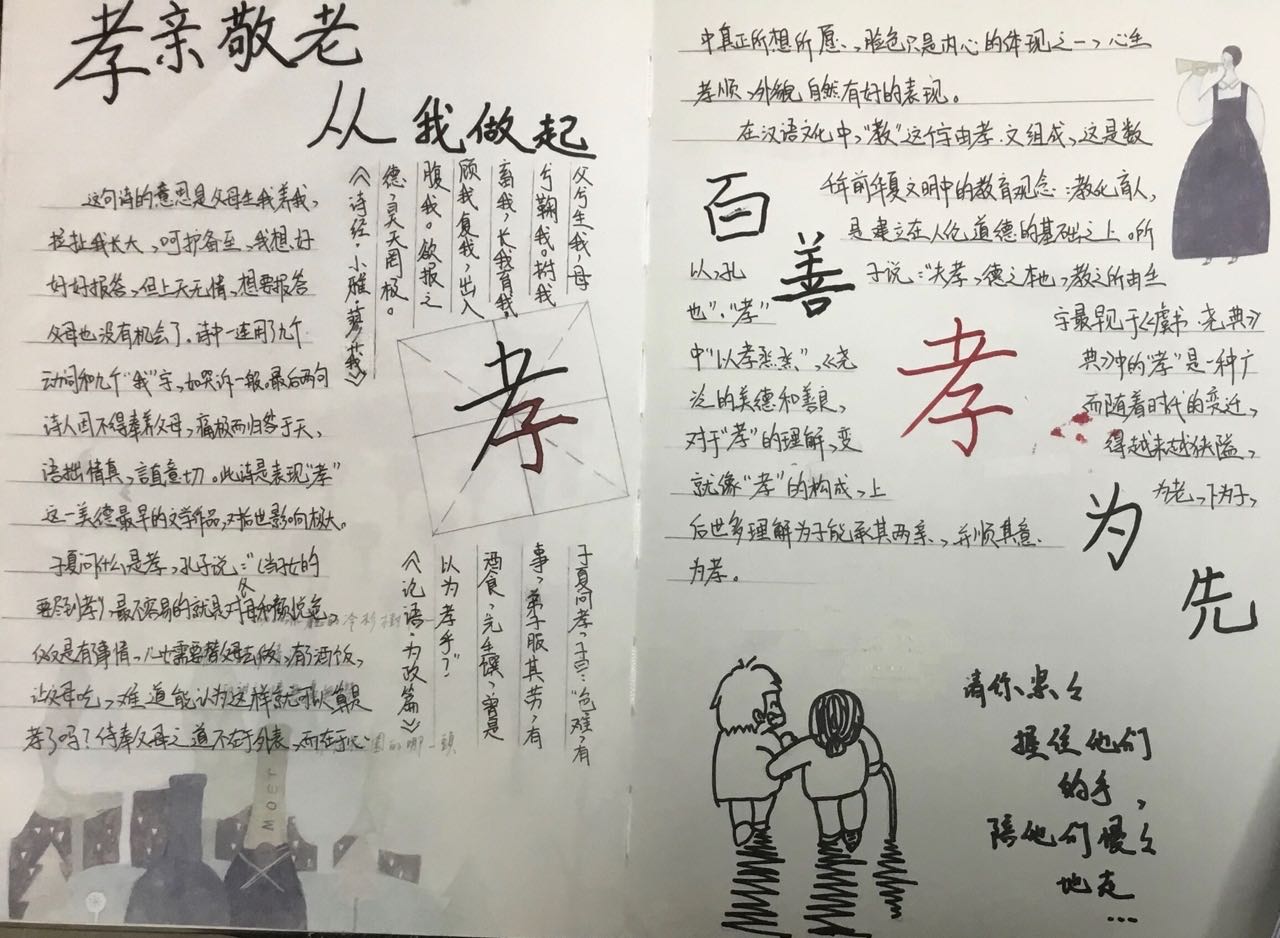 孝亲敬老
从我做起
父兮生我,母
兮鞠我。拊我
畜我,长我育我,
顾我复我,出入
腹我。欲报之
德,昊天罔极。
《诗经·小雅·蓼莪》
这句诗的意思是父母生我养我,
拉扯我长大,呵护备至,我想好
好好报答,但上天无情,想要报答
父母也没有机会了。诗中一连用了九个
动词和九个“我”字,如哭诉一般,最后两句
诗人因不得奉养父母,痛极而归咎于天,
语拙情真,言直意切。此诗是表现“孝”
这一美德最早的文学作品,对后世影响极大。
孝
子夏问孝,子曰:“色难,有
事,弟子服其劳,有
酒食,先生馔,曾是
以为孝乎?”
《论语·为政篇》
子夏问什么是孝,孔子说:“(当子女的
要尽到孝),最不容易的就是对父母和颜悦色。
仅仅是有事情,儿女需要替父母去做,有了酒饭,
让父母吃,难道能认为这样就可以算是
孝了吗?侍奉父母之道不在于外表,而在于心
MOET
中真正所想所愿,脸色只是内心的体现之一,心生
孝顺,外貌自然有好的表现。
在汉语文化中,“教”这个字由孝、文组成,这是数
千年前华夏文明中的教育观念:教化育人,
是建立在人伦道德的基础之上。所
以,孔子说:“夫孝,德之本也,教之所由生
也”。“孝”字最早见于《虞书·尧典》
中“以孝烝烝”,《尧典》中的“孝”是一种广
泛的美德和善良,而随着时代的变迁,
对于“孝”的理解,变得越来越狭隘,
就像“孝”的构成,上为老,下为子,
后世多理解为子能承其两亲,并顺其意,
为孝。
百
善
孝
为
先
请你紧紧
握住他们
的手,
陪他们慢慢
地走
…